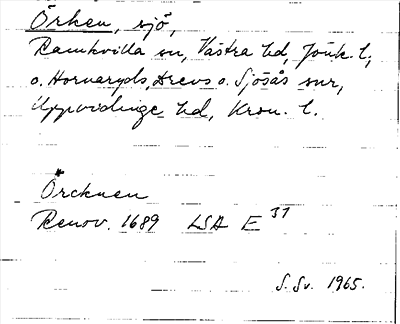 Örken, sjö,
Ramkvilla sn, Västra hd, Jönk. l;
o. Hornaryds, Drevs o. Sjösås snr,
Uppvidinge hd, Kron. l.
*Örcknen
Renov. 1689 LSA E 31
S. Sv. 1965.